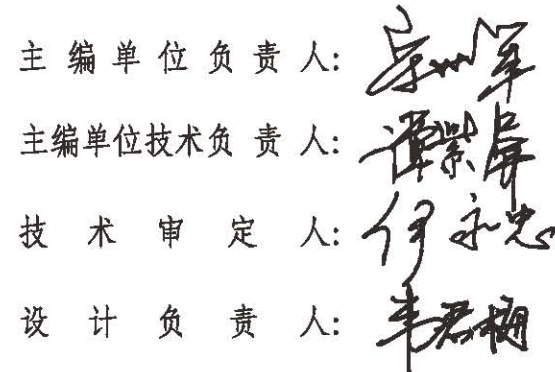 主编单位负责人:
主编单位技术负责人: 谭紫屏
技术审定人: 伊永忠
设计负责人: 韦君梅